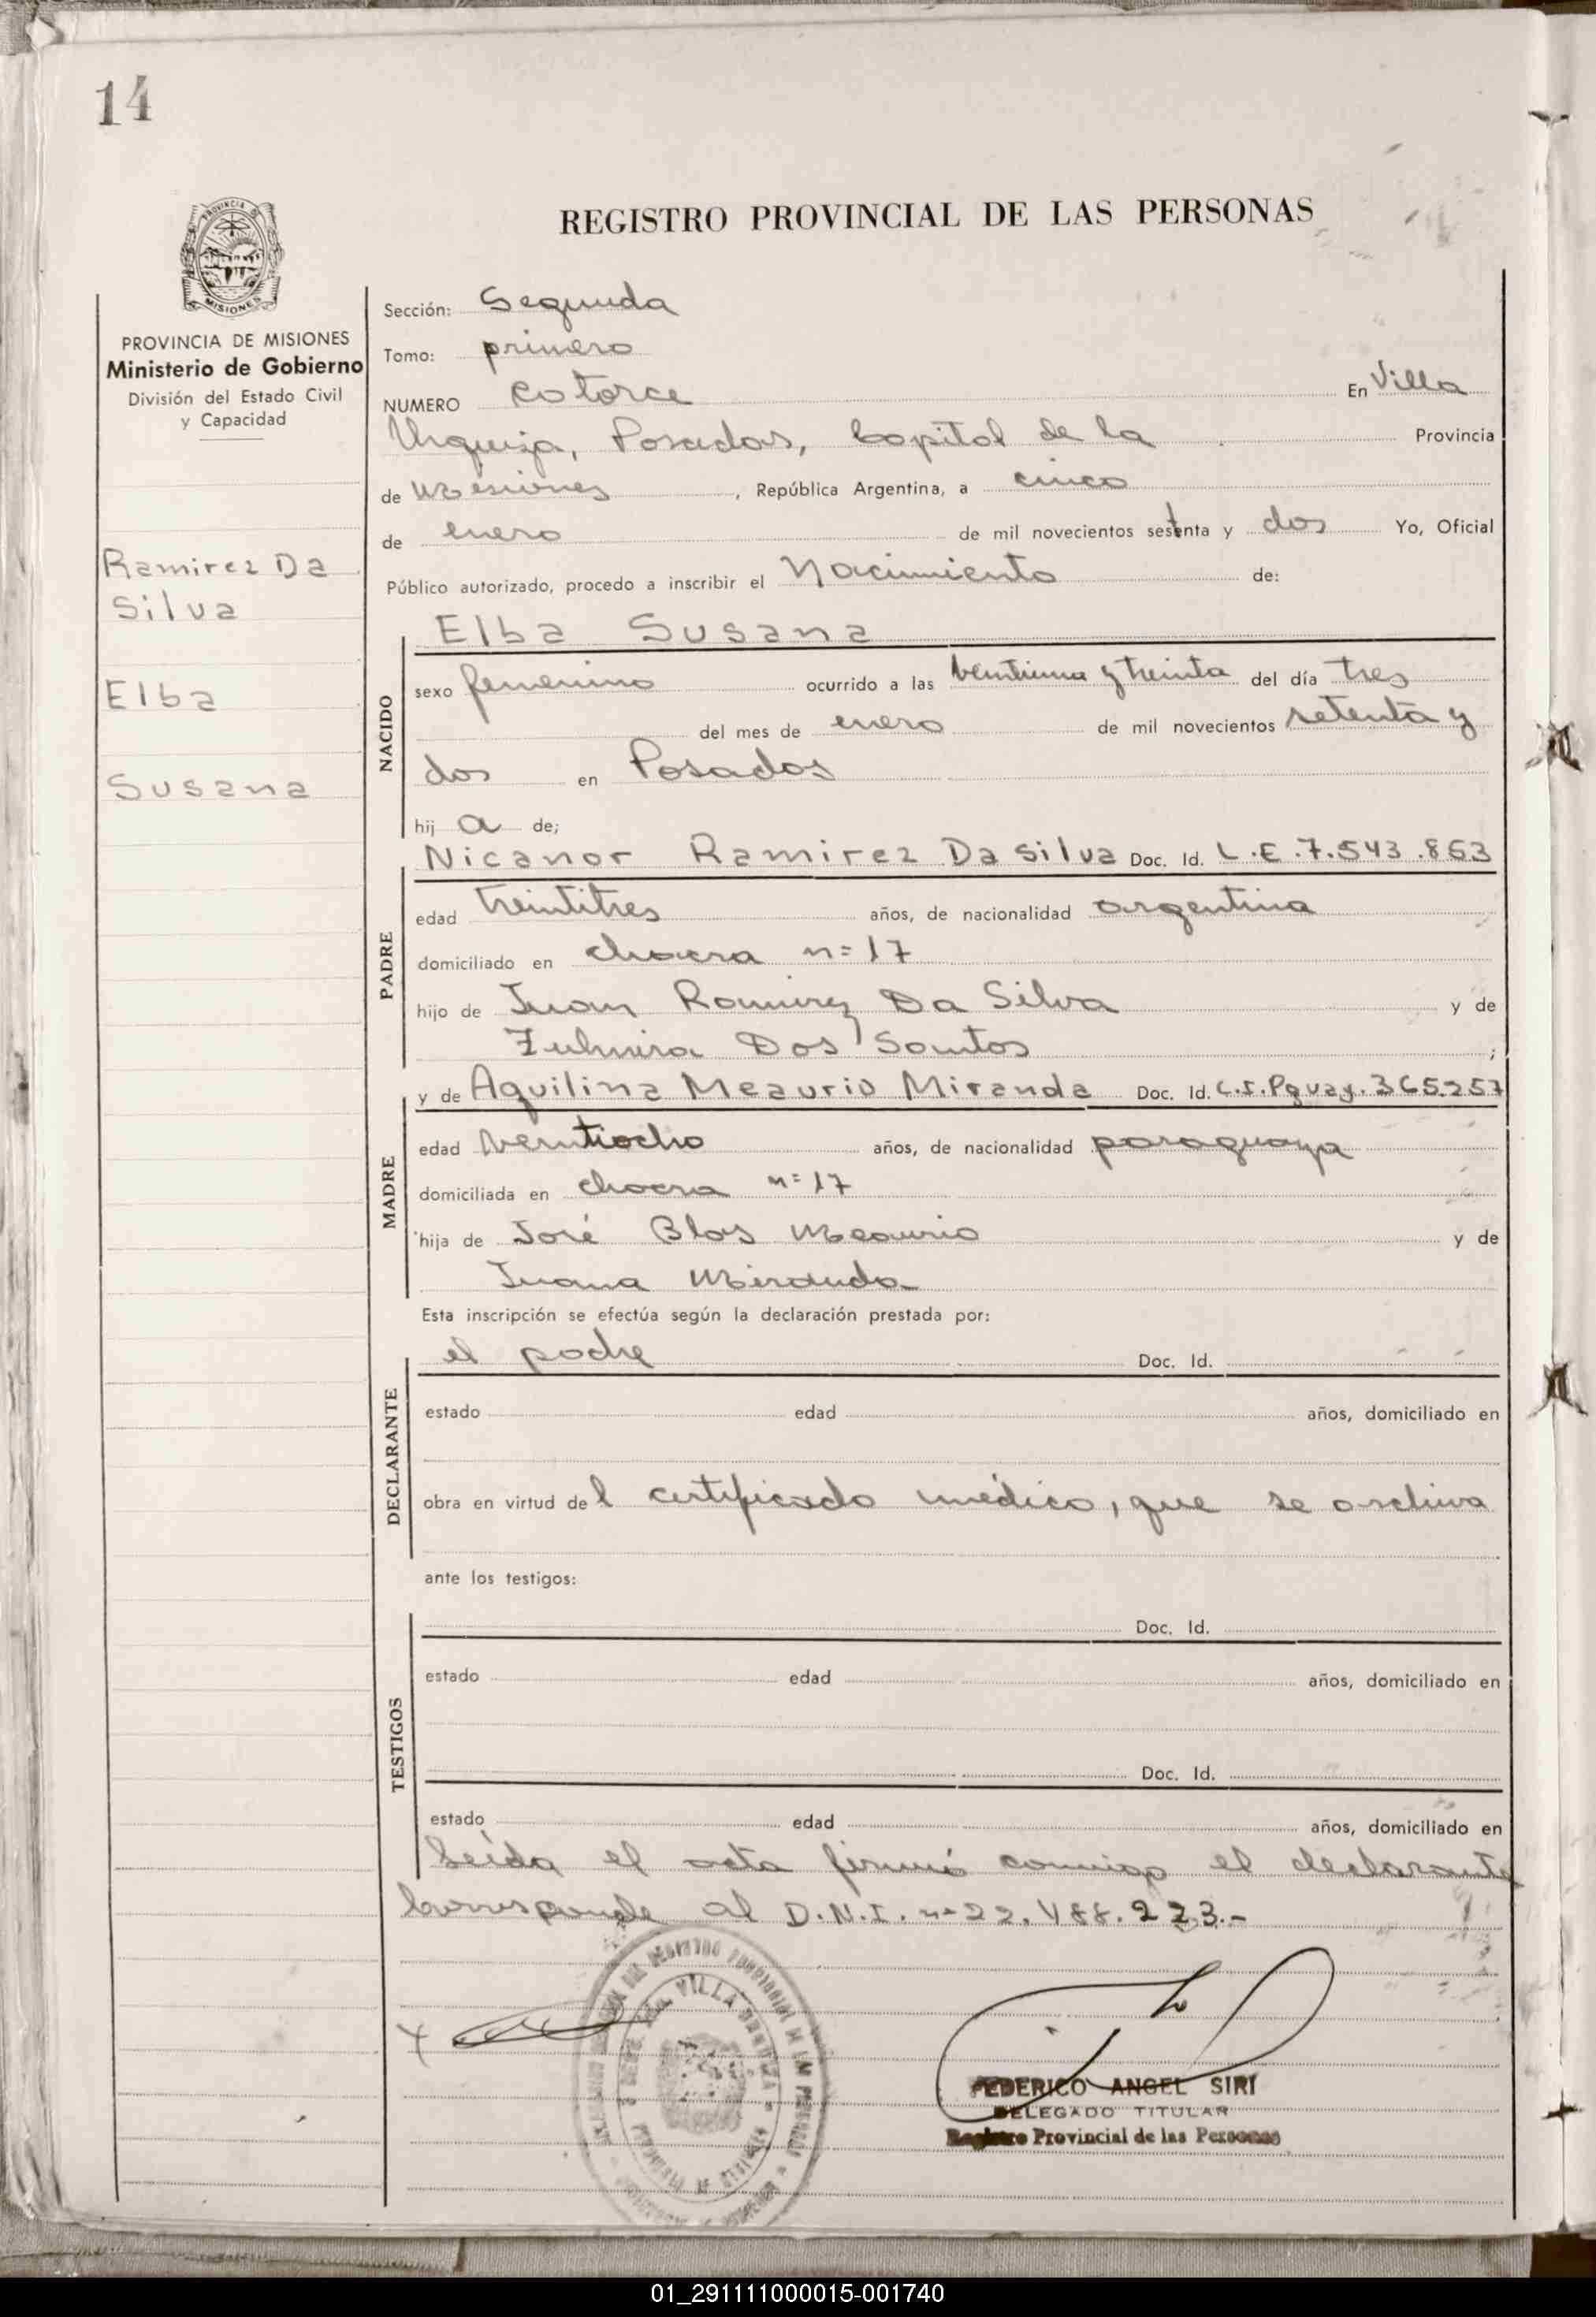 14
PROVINCIA DE
MISIONES
PROVINCIA DE MISIONES
Ministerio de Gobierno
División del Estado Civil
y Capacidad
Ramirez Da
Silva
Elba
Susana
REGISTRO PROVINCIAL DE LAS PERSONAS
Sección: Segunda
Tomo: primero
NUMERO catorce En Villa
Urquiza, Posadas, Capital de la Provincia
de Misiones, República Argentina, a cinco
de enero de mil novecientos setenta y dos Yo, Oficial
Público autorizado, procedo a inscribir el Nacimiento de:
Elba Susana
NACIDO
sexo femenino ocurrido a las ventiuna y treinta del día tres
del mes de enero de mil novecientos setenta y
dos en Posadas
hij a de;
Nicanor Ramirez Da Silva Doc. Id. L.E.7.543.863
PADRE
edad treintitres años, de nacionalidad argentina
domiciliado en chacra n=17
hijo de Juan Ramirez Da Silva y de
Zulmira Dos Santos ;
y de Aquilina Meaurio Miranda Doc. Id. C.I.Pguay.365.257
MADRE
edad ventiocho años, de nacionalidad paraguaya
domiciliada en chacra n=17
hija de José Blas Meaurio y de
Juana Miranda
Esta inscripción se efectúa según la declaración prestada por:
el padre Doc. Id.
DECLARANTE
estado edad años, domiciliado en
obra en virtud del certificado médico, que se archiva
ante los testigos:
TESTIGOS
Doc. Id.
estado edad años, domiciliado en
Doc. Id.
estado edad años, domiciliado en
Leída el acta firmó conmigo el declarante
Corresponde al D.N.I. n=22.488.223.-
VILLA URQUIZA
FEDERICO ANGEL SIRI
DELEGADO TITULAR
Registro Provincial de las Personas
01_291111000015-001740